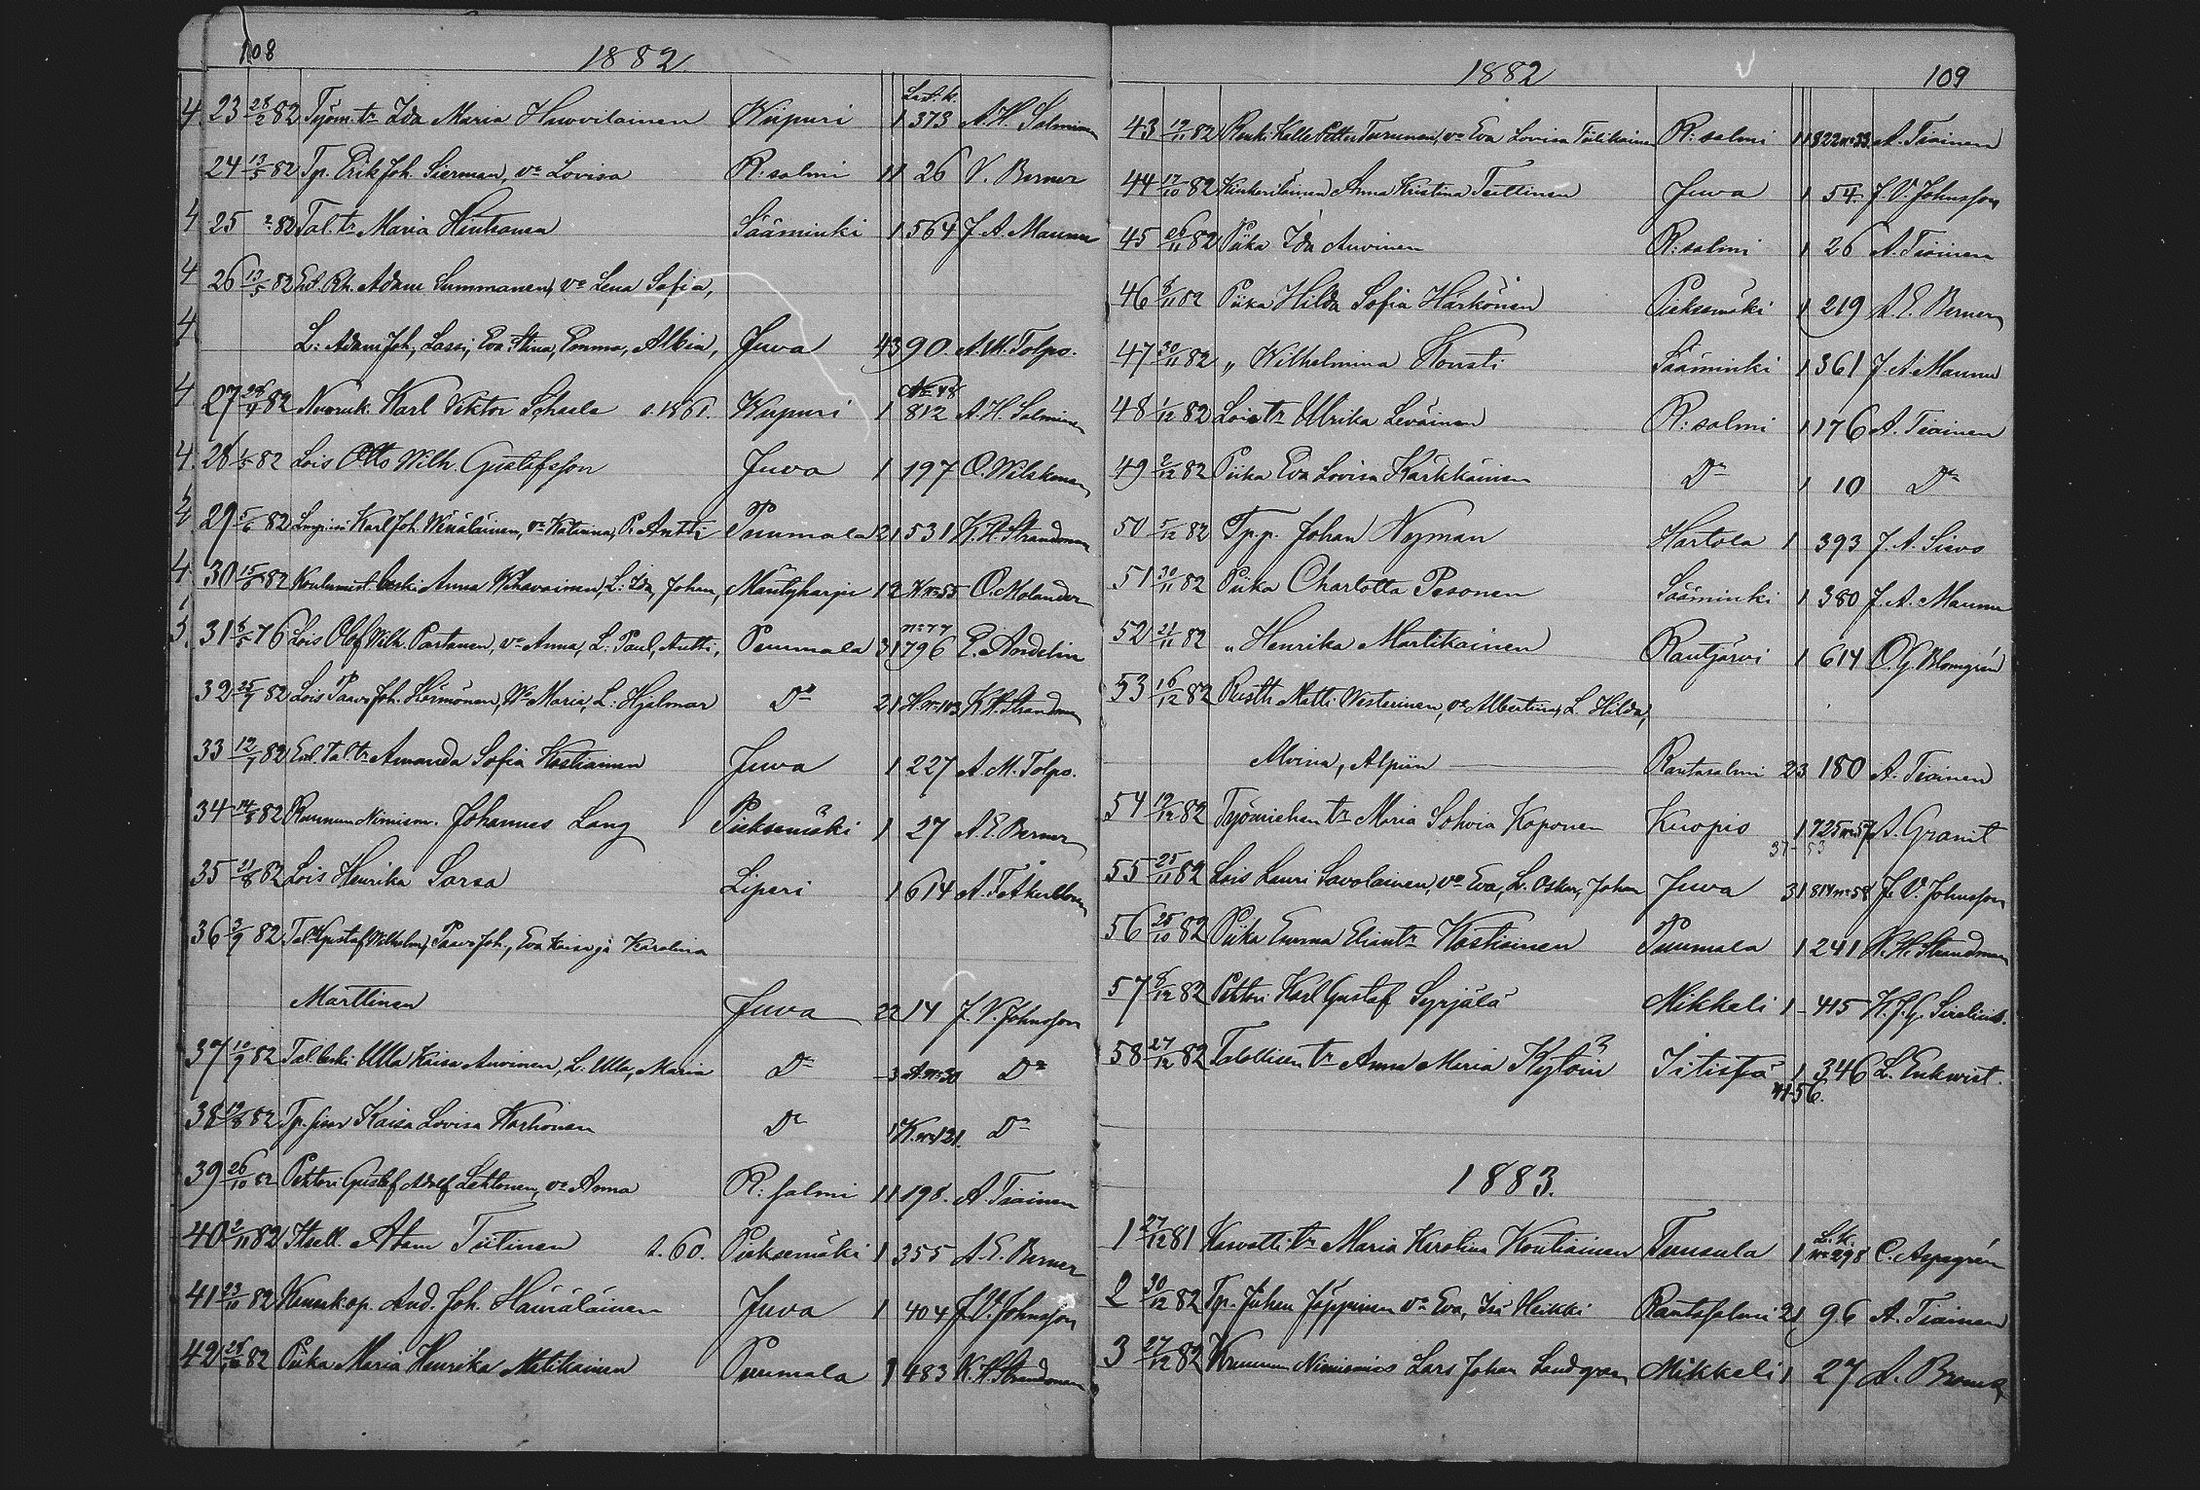 108
1882
4. 23 28/2 82 Työm. tr Ida Maria Huovilainen Wiipuri 1 Lis. k. 373 A. H. Salminen
24 13/5 82 Tp. Erik Joh. Sierman, vo Lovisa R:salmi 11 26 V. Berner
4 25 82 Tal. tr Maria Hintsanen Sääminki 1 564 J. A. Maunu
4 26 13/5 82 Ent. Rh. Adam Summanen, vo Lena Sofia,
4 L: Adam Joh, Lassi, Eva Stina, Emma, Albin, Juva 43 90. A. M. Tolpo.
4 27 82 Nuoruk. Karl Viktor Schulе s. 1861. Wiipuri 1 812 A. H. Salminen
4. 28 82 Lois Otto Wilh. Gustafsson Juva 1 197 O. Wilskman
4 29 5/6 82 Karl Joh. Winäläinen, vo Katarina, P. Antti Puumala 21 531 K. H. Strandman
4. 30 15/5 82 leski Anna L: Ida, Johan, Mäntyharju 12 K no 55 O. Molander
3. 31 76 Lois Olof Wilh. Partanen, vo Anna, L: Paul, Antti, Puumala 31 no 77 796 E. Andelin
32 25/7 82 Lois Paavo Joh. Hörmönen, Wo Maria, L: Hjalmar Do 21 H no 103 K. H. Strandman
33 12/7 82 Ent. tal. tr Amanda Sofia Kostiainen Juva 1 227 A. M. Tolpo.
34 14/8 82 Ruununnimism. Johannes Lang Pieksemäki 1 27 A. E. Berner
35 21/8 82 Lois Henrika Sarsa Liperi 1 614 A. F. Åkerblom
36 3/9 82 Tal. Gustaf Wilhelm, Paavo Joh., Eva Kaisa ja Karolina
Marttinen Juva 22 14 J. V. Johnsson
37 10/9 82 Tal. leski Ulla Kaisa Auvinen, L. Ulla, Maria Do 3 A no 30 Do
38 82 Tp. Kaisa Lovisa Karhonen Do 1 K. no 121. Do
39 26/10 82 Rektori Gustaf Adolf Lehtonen, vo Anna R:salmi 11 198. A. Tiainen
40 2/11 82 Itsell. Adam Tiitinen s. 60. Pieksemäki 1 355 A. E. Berner
41 23/10 82 And. Joh. Häuräläinen Juva 1 404 J. V. Johnsson
42 82 Piika Maria Henrika Matikainen Puumala 1 483 K. H. Strandman
1882
109
43 82 Renki Kalle Petter Turunen, vo Eva Lovisa Tiilikainen R:salmi 11 822 no 33 A. Tiainen
44 17/10 82 Anna Kristina Teittinen Juva 1 54. J. V. Johnsson
45 26/11 82 Piika Ida Auvinen R:salmi 1 26 A. Tiainen
46 82 Piika Hilda Sofia Härkönen Pieksemäki 1 219 A. E. Berner
47 30/11 82 „ Wilhelmina Kousti Sääminki 1 361 J. A. Maunu
48 1/12 82 Lois tr Ulrika Leväinen R:salmi 1 176 A. Tiainen
49 2/12 82 Piika Eva Lovisa Kärkkäinen Do 1 10 Do
50 5/12 82 Tp.p. Johan Nyman Hartola 1 393 J. A. Siwo
51 30/11 82 Piika Charlotta Pesonen Sääminki 1 380 J. A. Maunu
52 21/11 82 „ Henrika Martikainen Rautjärvi 1 614 O. G. Blomgrén
53 16/12 82 Rustt. Matti Westerinen, vo Albertina, L. Hilda,
Alvina, Alpiin Rantasalmi 23 180 A. Tiainen
54 19/12 82 Työmiehen tr Maria Sohvia Koponen Kuopio 1 725 no 57 A. Granit
37-53
55 25/11 82 Lois Lauri Savolainen, vo Eva, L. Oskar, Johan Juva 31 814 no 58 J. V. Johnsson
56 25/10 82 Piika Emma Elian tr Kostiainen Puumala 1 241 K. H. Strandman
57 82 Rektori Karl Gustaf Syrjälä Mikkeli 1 415 K. J. G. Sirelius.
58 27/12 82 Talollisen tr Anna Maria Kytöin Iitistä 1 346 L. Enkwist.
44-56.
1883.
1 27/12 81 Kasvatti tr Maria Karolina Koutiainen Tuusula 1 L. K. no 298 C. Aspegrén
2 30/12 82 Tp. Juhen Jäppinen vo Eva, Isä Heikki Rantasalmi 21 96 A. Tiainen
3 27/12 82 Kruunun Nimismies Lars Johan Landgren Mikkeli 1 27 A. Broms